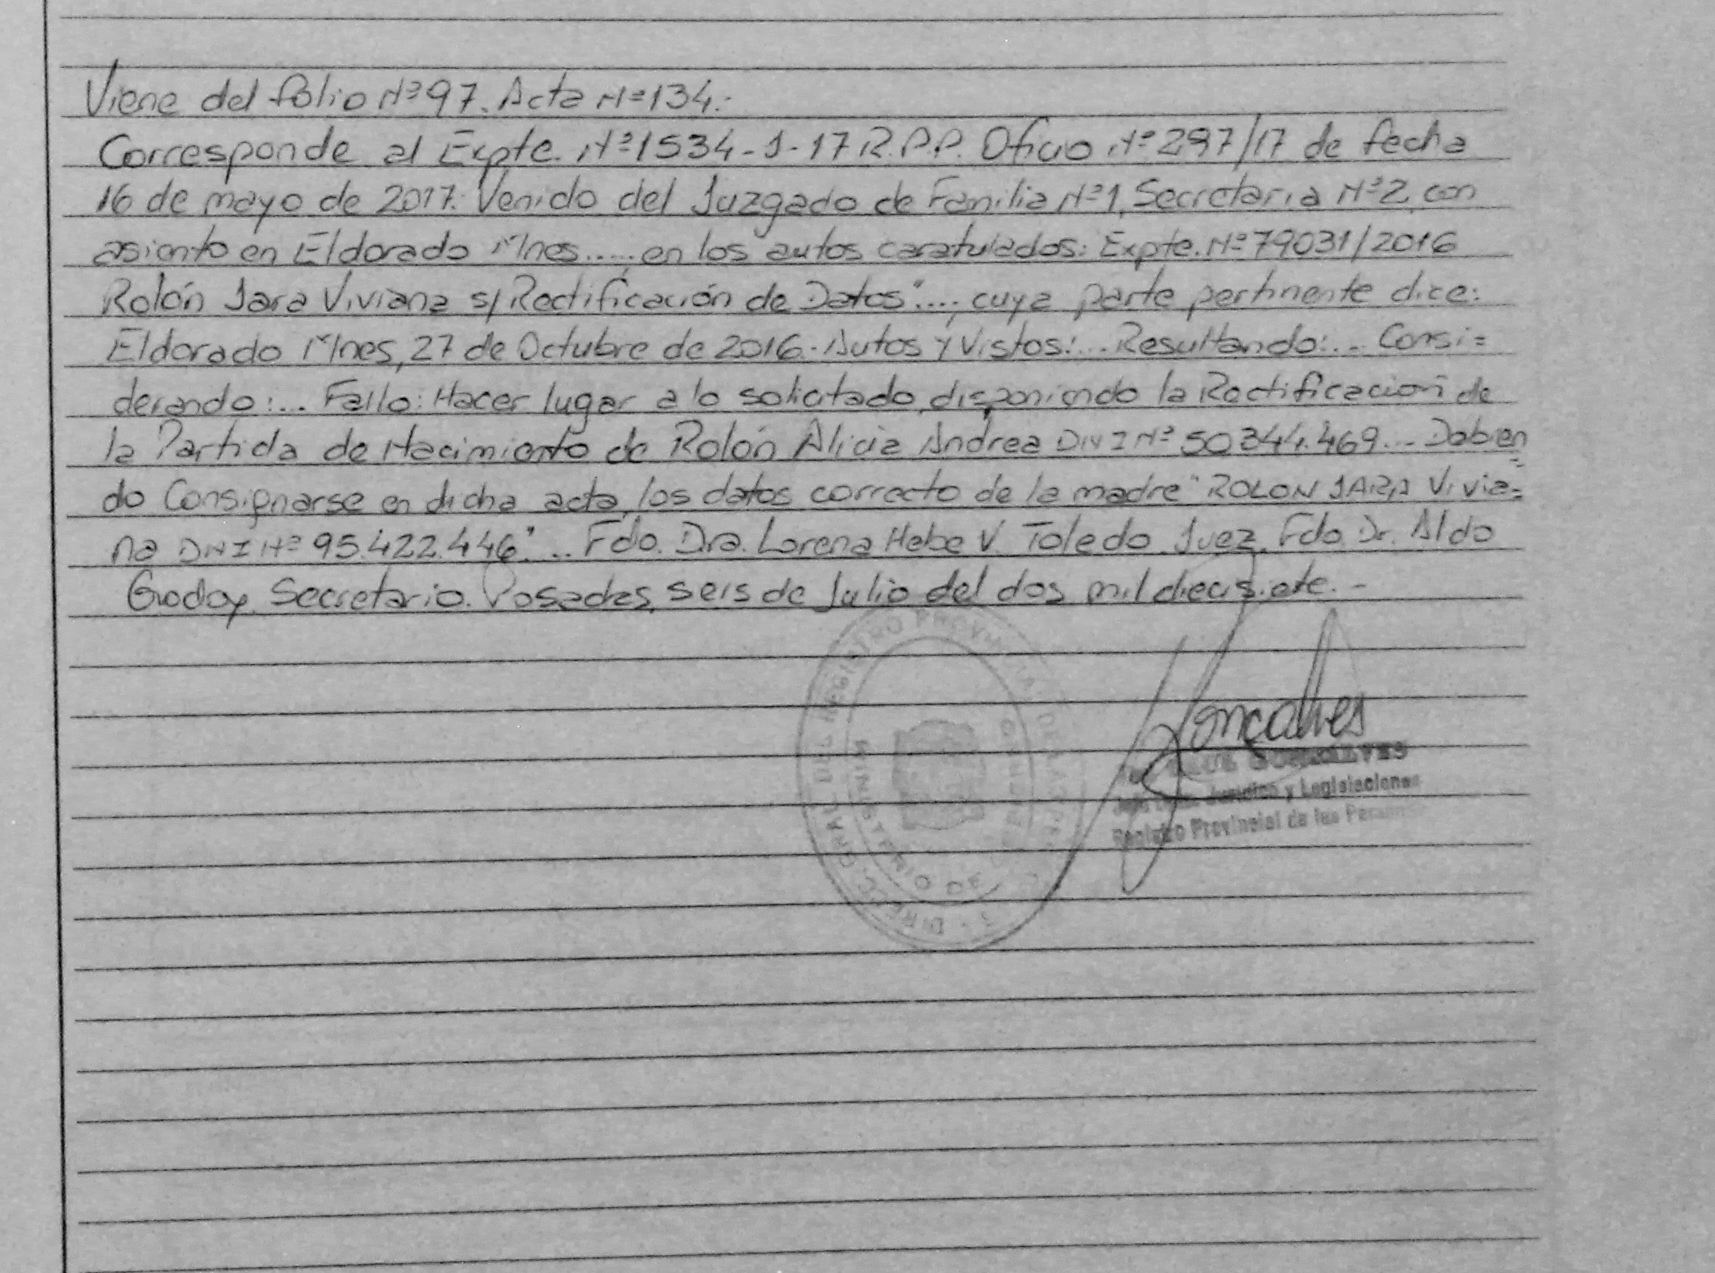 Viene del folio Nº 97. Acta Nº 134.-
Corresponde al Expte. Nº 1534-J-17 R.P.P. Oficio Nº 297/17 de fecha
16 de mayo de 2017. Venido del Juzgado de Familia Nº 1, Secretaria Nº 2, con
asiento en Eldorado Mnes....., en los autos caratulados: Expte. Nº 79031/2016
Rolón Jara Viviana s/Rectificación de Datos"...., cuya parte pertinente dice:
Eldorado Mnes, 27 de Octubre de 2016.- Autos y Vistos:... Resultando:... Consi=
derando:... Fallo: Hacer lugar a lo solicitado, disponiendo la Rectificación de
la Partida de Nacimiento de Rolón Alicia Andrea DNI Nº 50.344.469... Debien
=
do Consignarse en dicha acta, los datos correcto de la madre "ROLON JARA Vivia=
na DNI Nº 95.422.446"... Fdo. Dra. Lorena Hebe V. Toledo Juez, Fdo. Dr. Aldo
Godoy, Secretario. Posadas, seis de Julio del dos mil diecisiete.-
DIRECC. GRAL. DEL REGISTRO PROVINCIAL DE LAS
MINISTERIO DE
Goncalves
GONCALVES
Juridico y Legislaciones
Registro Provincial de las